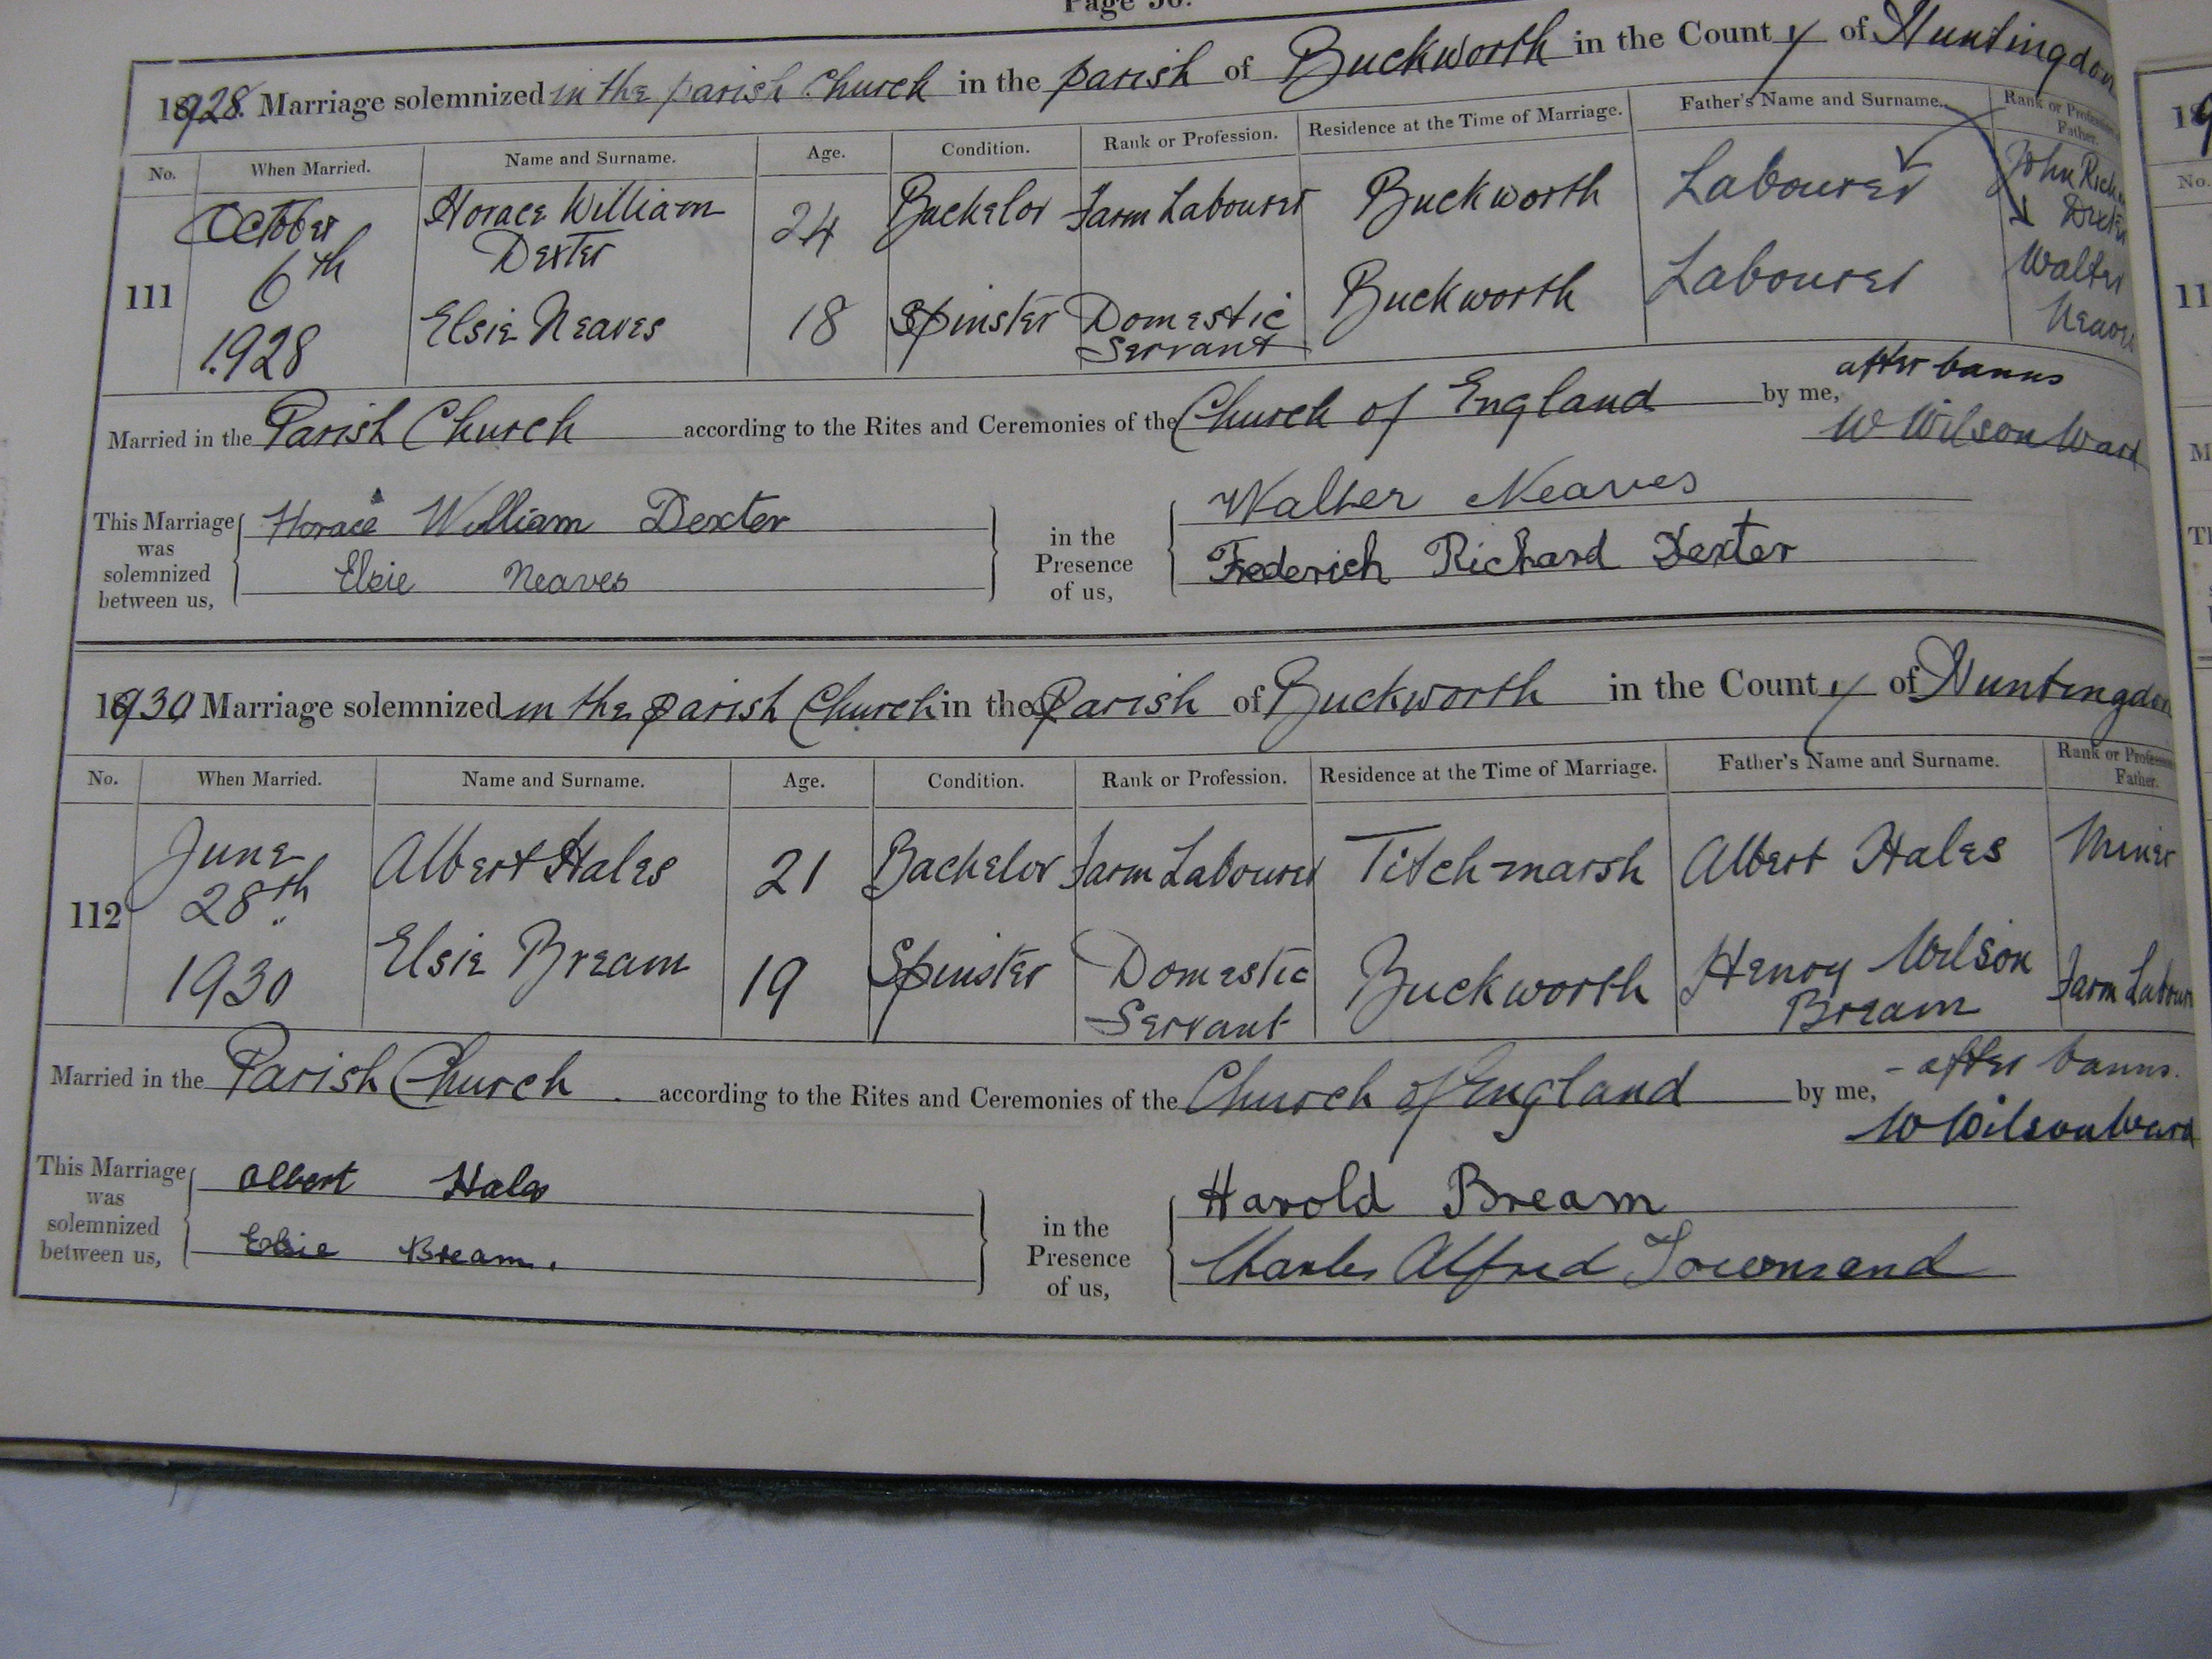 Page 56.
1928. Marriage solemnized in the parish Church in the parish of Buckworth in the County of Huntingdon
No. When Married. Name and Surname. Age. Condition. Rank or Profession. Residence at the Time of Marriage. Father's Name and Surname. Rank or Profession Father.
111 October 6th 1928
Horace William Dexter 24 Bachelor Farm Labourer Buckworth Labourer John Rich Dexter
Elsie Neaves 18 Spinster Domestic Servant Buckworth Labourer Walter Neaves
after banns
Married in the Parish Church according to the Rites and Ceremonies of the Church of England by me, W Wilson Ward
This Marriage was solemnized between us, Horace William Dexter
Elsie Neaves
in the Presence of us, Walter Neaves
Frederich Richard Dexter
1930 Marriage solemnized in the parish Church in the Parish of Buckworth in the County of Huntingdon
No. When Married. Name and Surname. Age. Condition. Rank or Profession. Residence at the Time of Marriage. Father's Name and Surname. Rank or Profession Father.
112 June 28th 1930
Albert Hales 21 Bachelor Farm Labourer Titchmarsh Albert Hales Miner
Elsie Bream 19 Spinster Domestic Servant Buckworth Henry Wilson Bream Farm Labour
- after banns.
Married in the Parish Church . according to the Rites and Ceremonies of the Church of England by me, W Wilson Ward
This Marriage was solemnized between us, Albert Hales
Elsie Bream.
in the Presence of us, Harold Bream
Charles Alfred Townsend